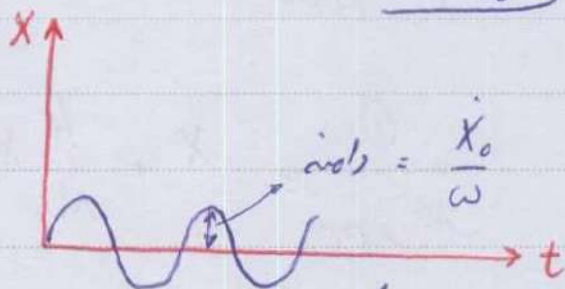 X
دامنه = Ẋ₀/ω
t